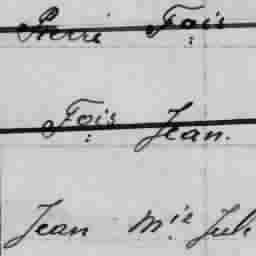 Pierri Fois
Fois Jean.
Jean M.ie Juh